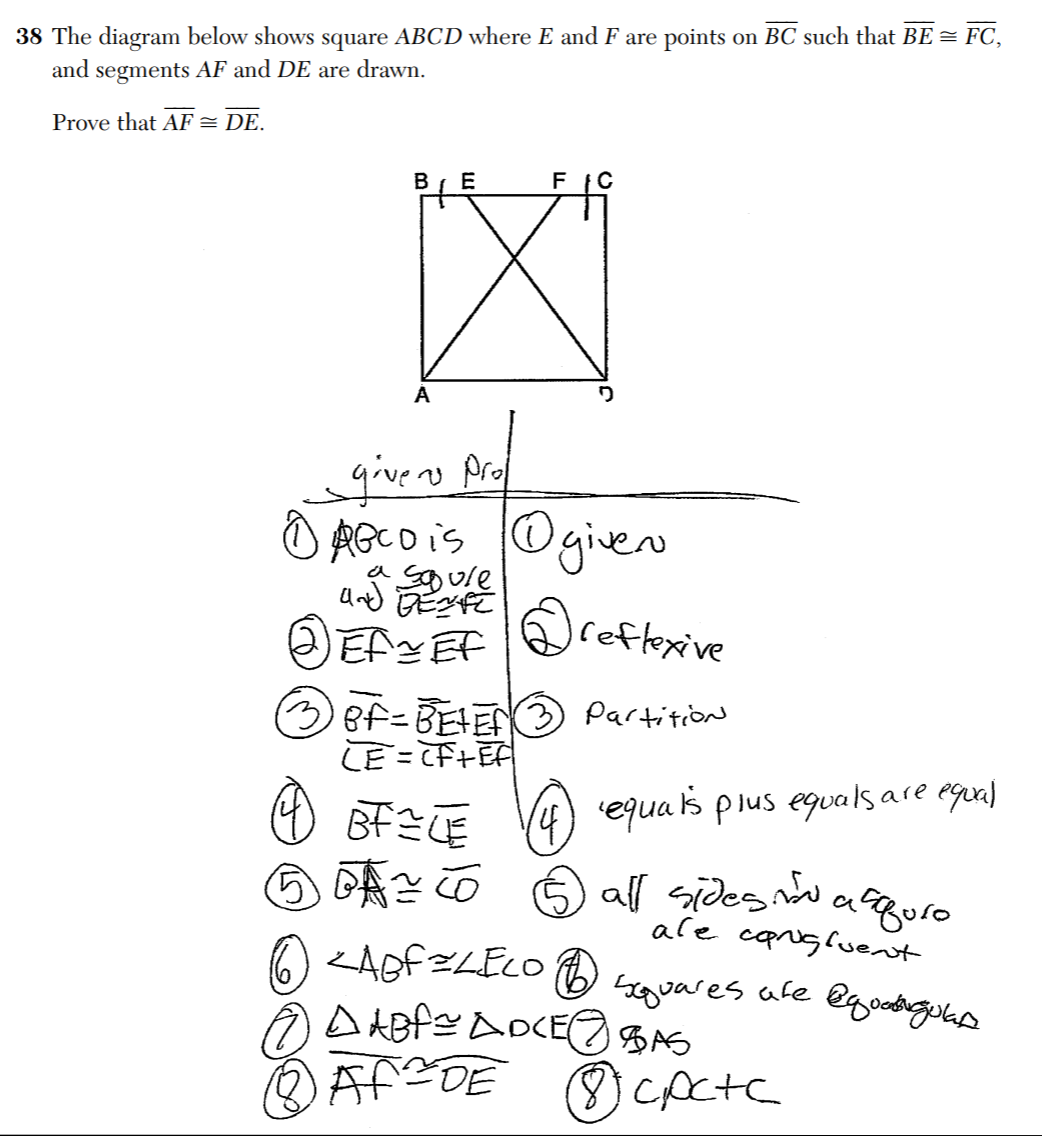 38 The diagram below shows square ABCD where E and F are points on BC such that BE ≅ FC,
and segments AF and DE are drawn.
Prove that AF ≅ DE.
B E F C
A D
given Pro
① ABCD is ① given
a squre
and BE≅FC
② EF≅EF ② reflexive
③ BF=BE+EF ③ Partition
CE=CF+EF
④ BF≅CE ④ equals plus equals are equal
⑤ BA≅CD ⑤ all sides in a squre
are congruent
⑥ <ABF≅∠ECD ⑥ squares are equangular
⑦ △ABF≅△DCE ⑦ SAS
⑧ AF≅DE ⑧ CPCTC